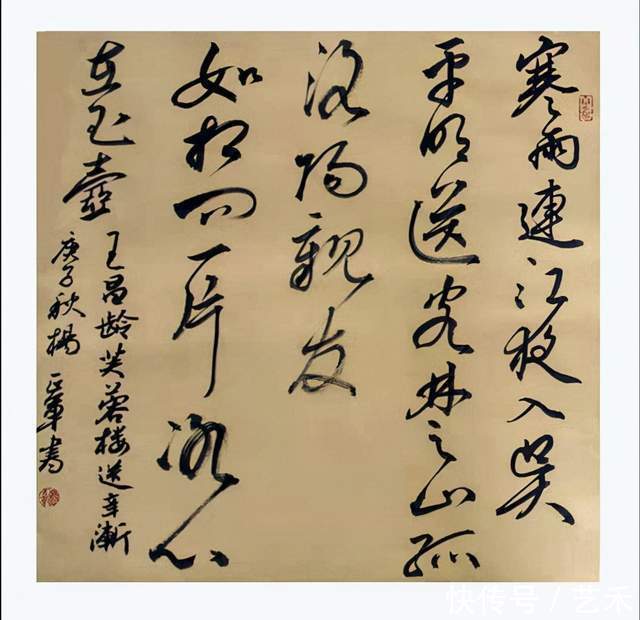 寒雨連江夜入吴
平明送客楚山孤
洛陽親友
如相问一片冰心
在玉壺
王昌龄芙蓉楼送辛漸
庚子秋楊書
快传号 / 艺禾